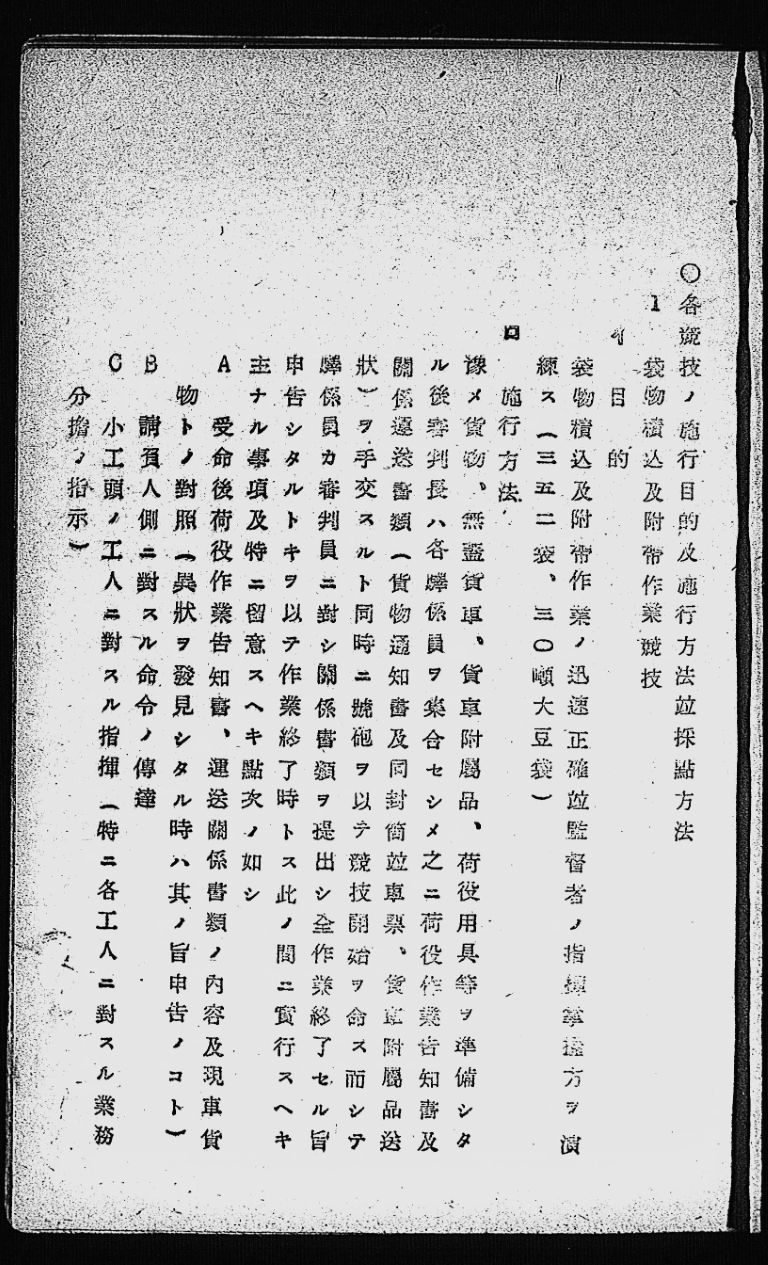 〇各競技ノ施行目的及施行方法竝採點方法
1 袋物積込及附帶作業競技
イ 目的
袋物積込及附帶作業ノ迅速正確竝監督者ノ指揮掌握方ヲ演
練ス（三五二袋、三〇噸大豆袋）
ロ 施行方法
豫メ貨物、無蓋貨車、貨車附屬品、荷役用具等ヲ準備シタ
ル後審判長ハ各驛係員ヲ集合セシメ之ニ荷役作業告知書及
關係運送書類（貨物通知書及同封筒竝車票、貨車附屬品送
狀）ヲ手交スルト同時ニ號砲ヲ以テ競技開始ヲ命ス而シテ
驛係員カ審判員ニ對シ關係書類ヲ提出シ全作業終了セル旨
申告シタルトキヲ以テ作業終了時トス此ノ間ニ實行スヘキ
主ナル事項及特ニ留意スヘキ點次ノ如シ
A 受命後荷役作業告知書、運送關係書類ノ內容及現車貨
物トノ對照（異狀ヲ發見シタル時ハ其ノ旨申告ノコト）
B 請負人側ニ對スル命令ノ傳達
C 小工頭ノ工人ニ對スル指揮（特ニ各工人ニ對スル業務
分擔ノ指示）